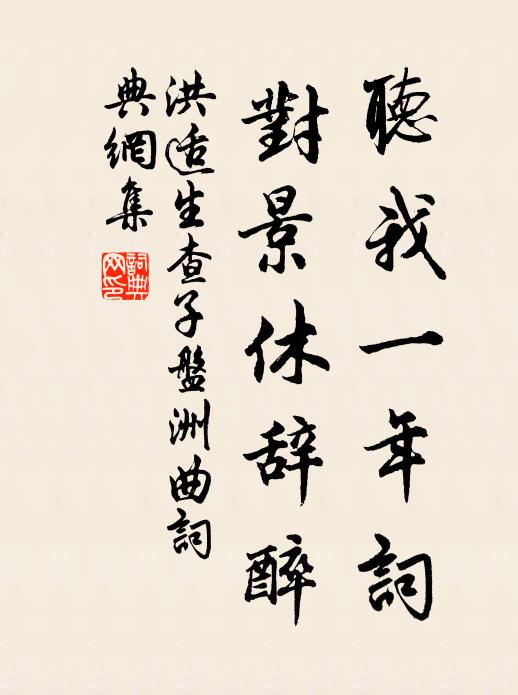 聽我一年詞
對景休辞醉
洪适生查子盤洲曲詞
典網集
詞典网印